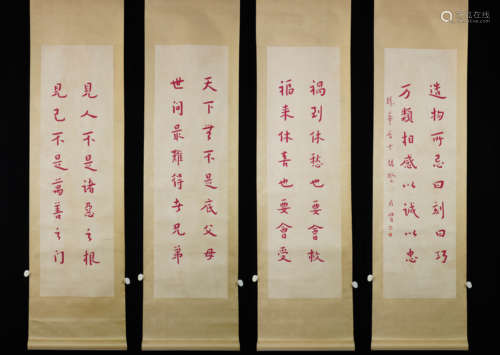 造物所忌曰刻曰巧
万類相感以誠以忠
禍到休愁也要會救
福来休喜也要會受
天下無不是底父母
世间最難得者兄弟
見人不是諸惡之根
見己不是萬善之门